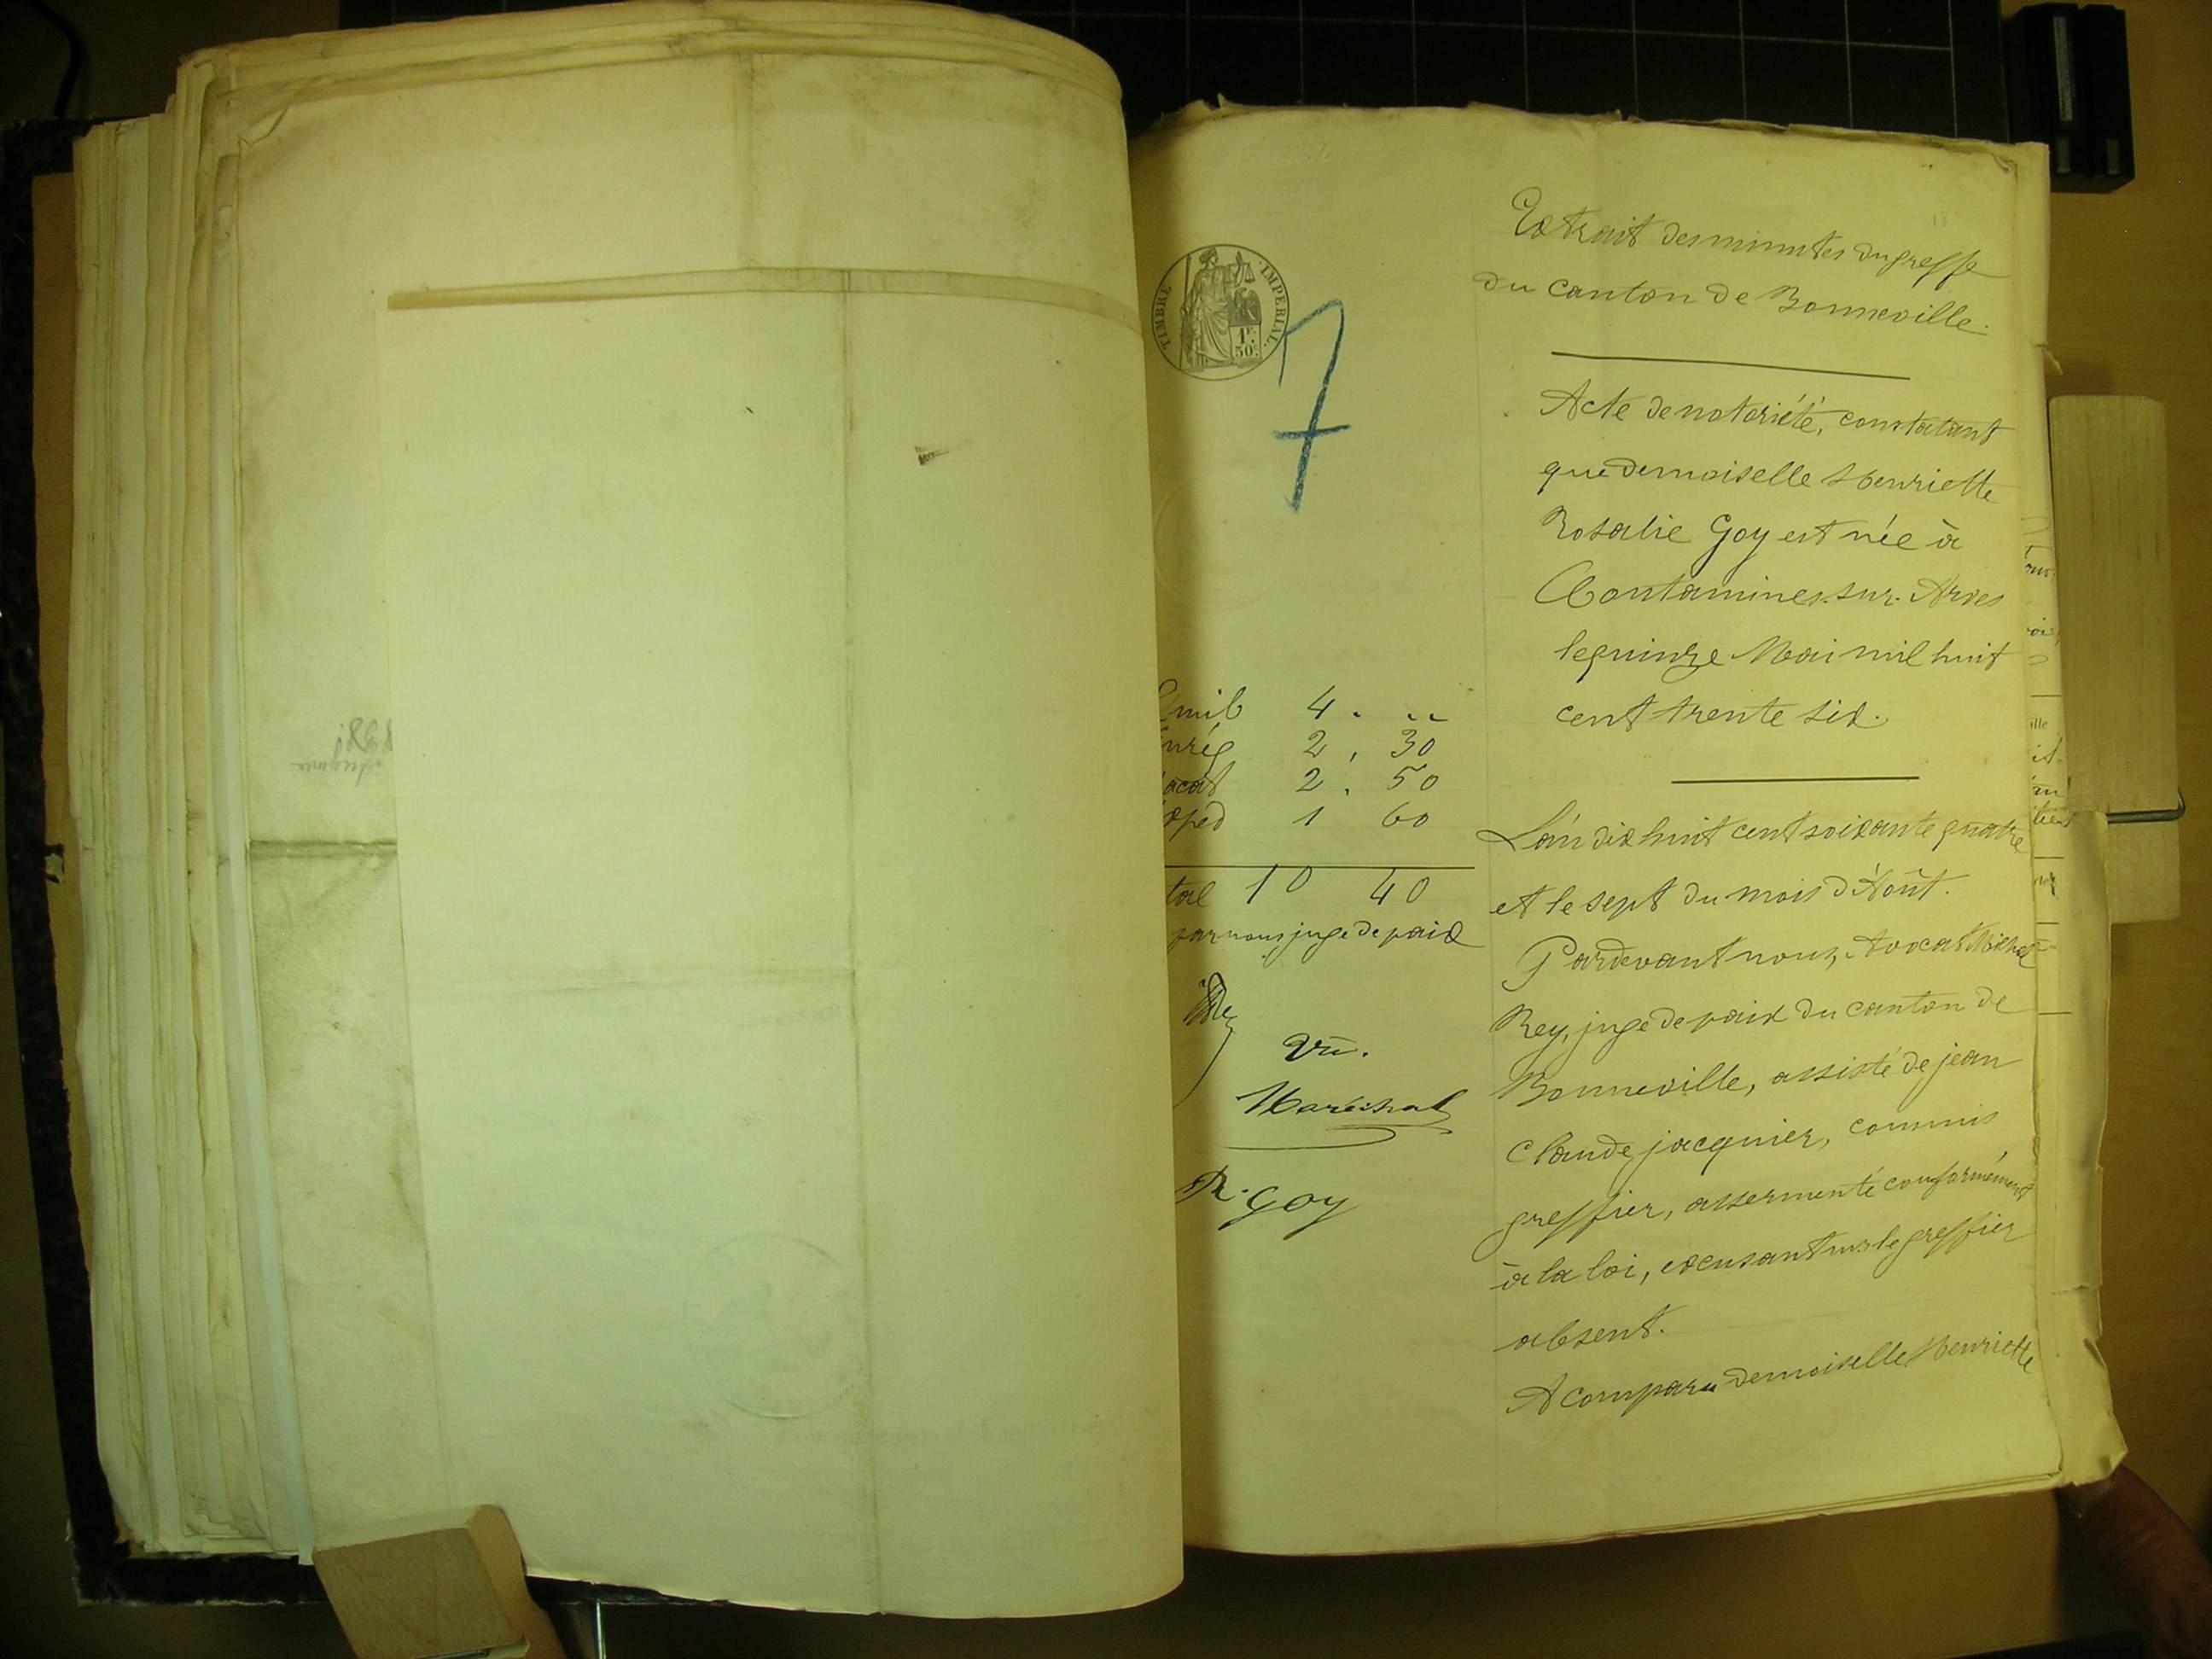 TIMBRE IMPERIAL.
1F. 50c.
7
Extrait des minutes du greffe
du canton de Bonneville.
Acte de notoriété, constatant
que demoiselle Henriette
Rosalie Goy est née à
Contamines-sur-Arves
le quinze Mai mil huit
cent trente six.
L'an dix huit cent soixante quatre
et le sept du mois d'Août.
Pardevant nous, Avocat Michel
Rey, juge de paix du canton de
Bonneville, assisté de jean
Claude jacquier, commis
greffier, assermenté conformément
à la loi, excusant mr le greffier
absent.
A comparu demoiselle Henriette
4 . ..
nrég 2 , 30
acat 2 . 50
xped 1 60
tal 10 40
par nous juge de paix
Vu.
Maréchal
R. Goy